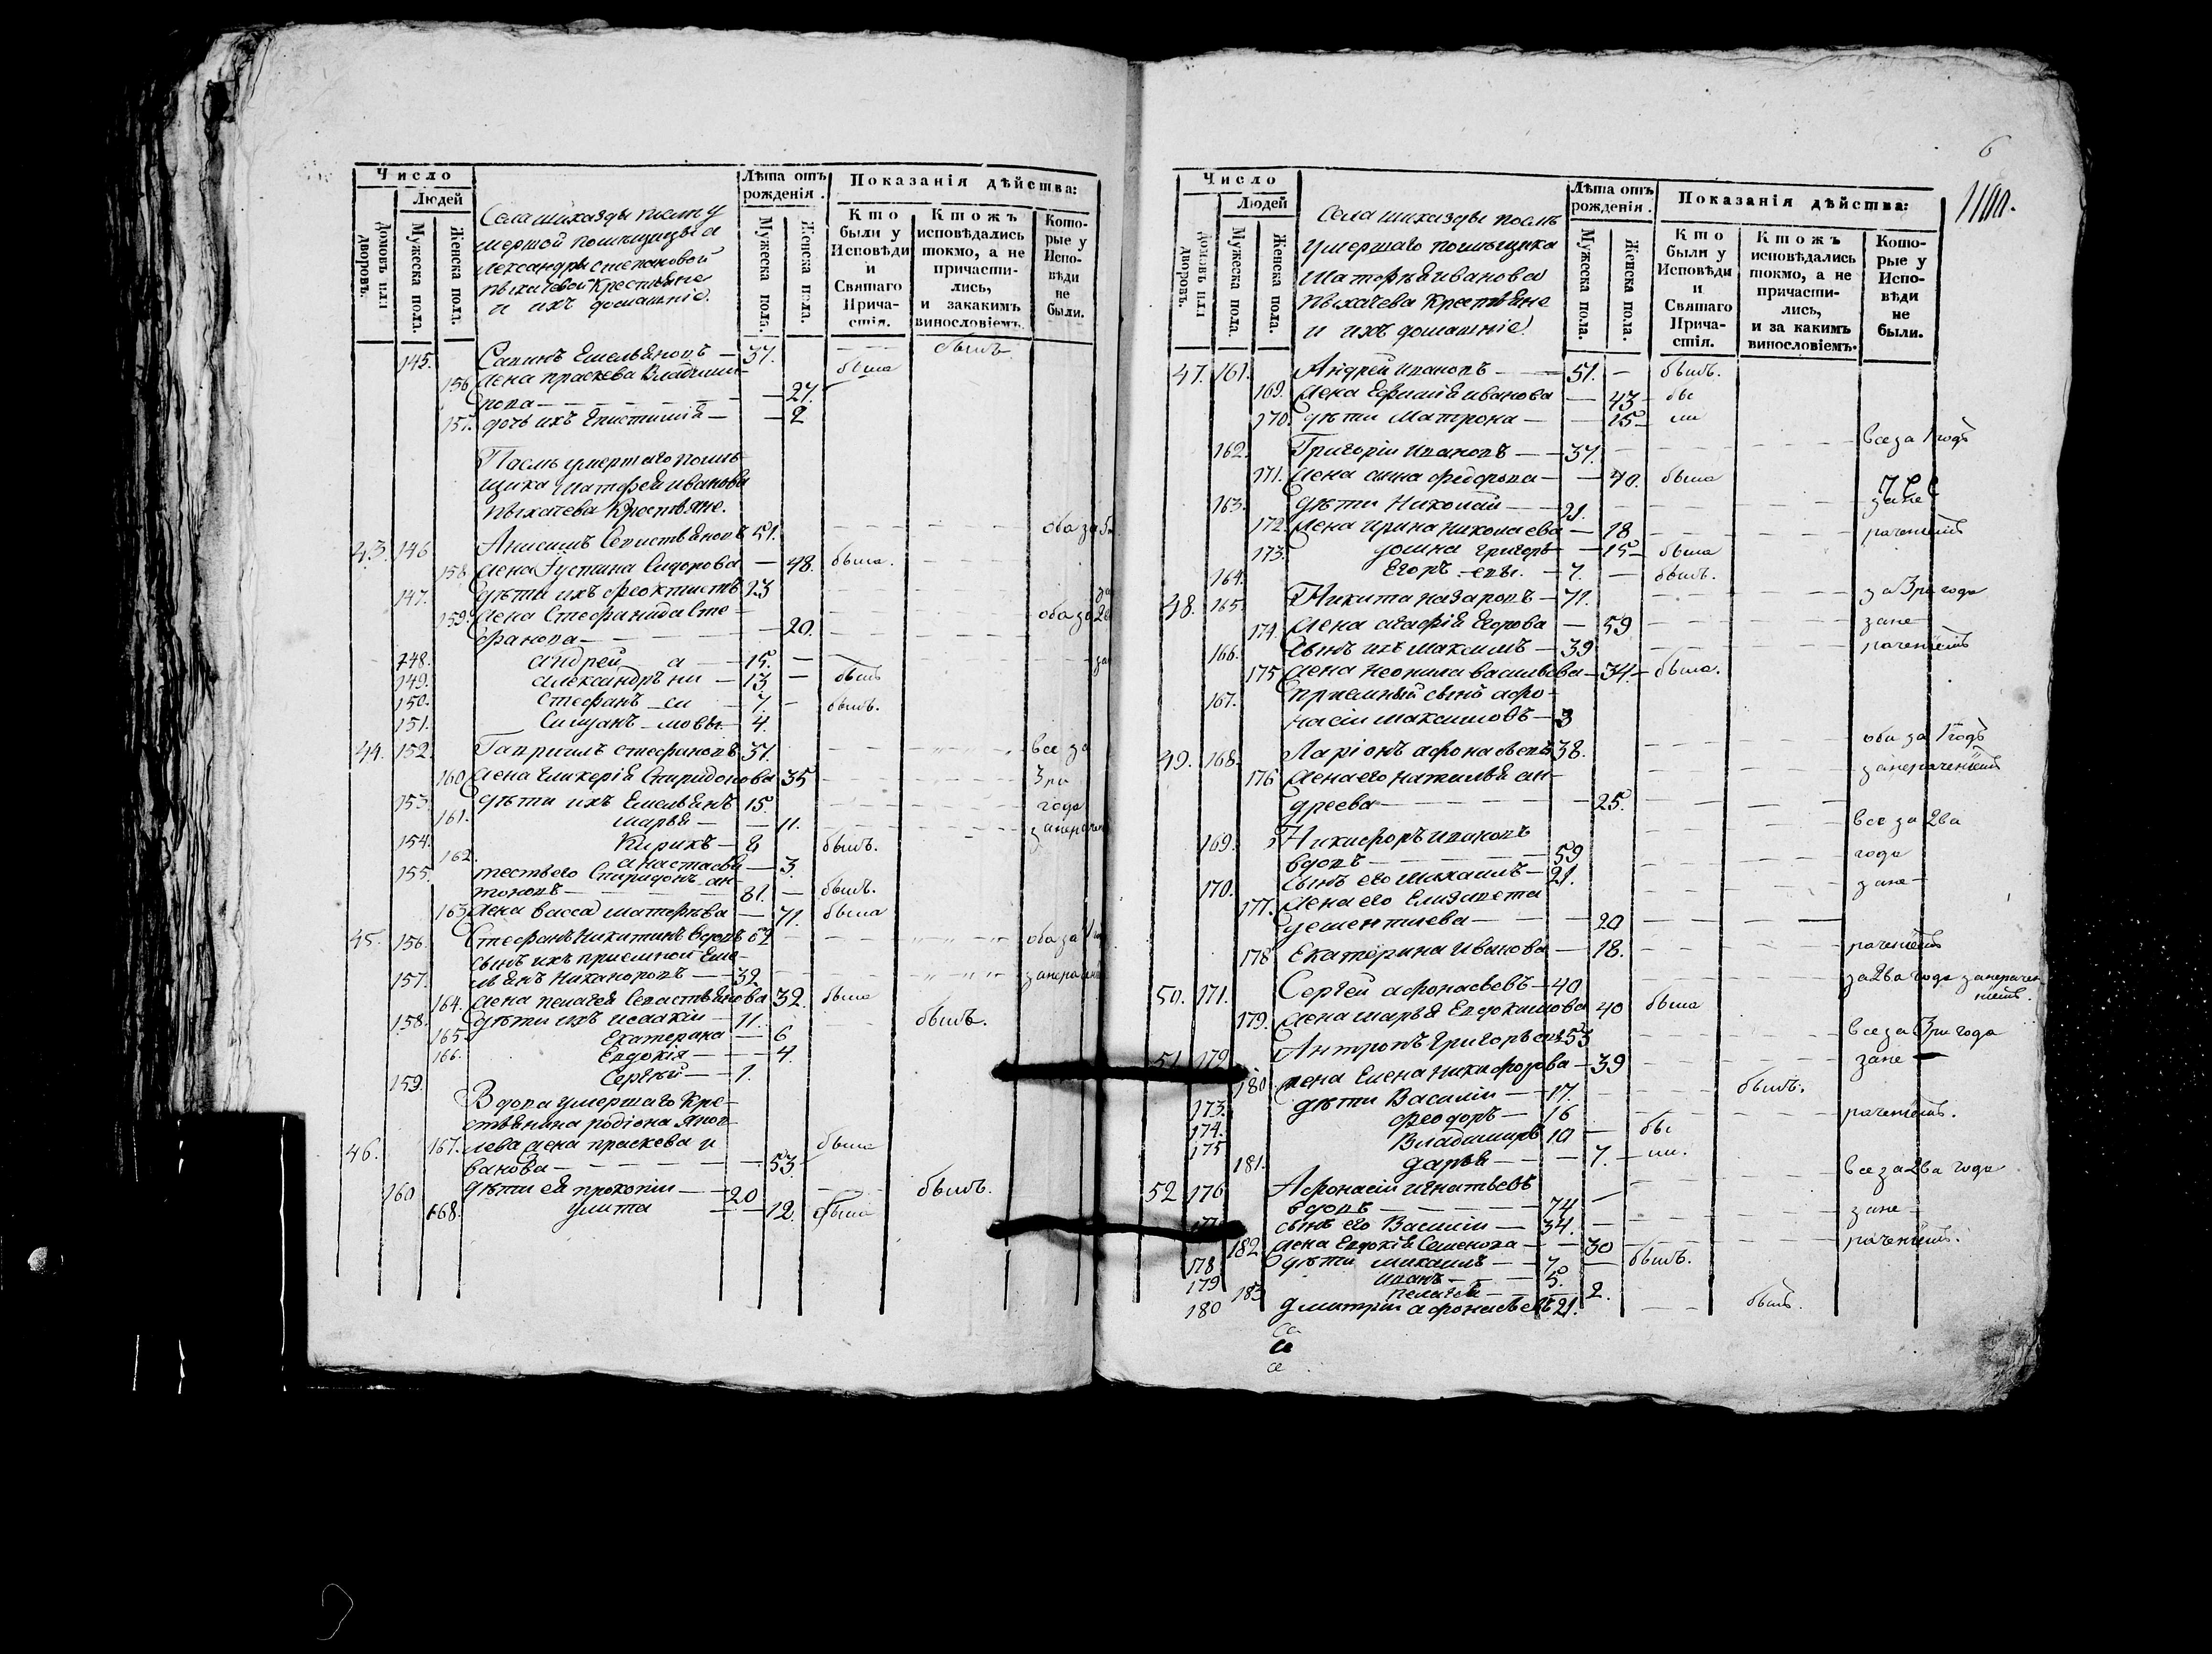 Число
Людей
Домовъ или дворовъ.
Мужеска пола.
Женска пола.
Села шихазды послѣ у
мершой помѣщицы а
лександры степановой
пыхачевой крестьяне
и ихъ домашнiе.
Лѣта отъ рожденiя.
Мужеска пола.
Женска пола.
Показанiя дѣйства:
Кто были у Исповѣди и Святаго Прича-стiя.
Ктожъ исповѣдались токмо, а не причасти-лись, и закакимъ винословiемъ.
Кото-рые у Испо-вѣди не были.
145. Савинъ Емельяновъ — 37. былъ
156 жена праскева Владими- была
рова — 27.
157. дочь ихъ Епистимiя — 2
Послѣ умершаго помѣ-
щика Матфея иванова
пыхачева Крестьяне.
43. 146. Анисимъ Севастьяновъ 51. оба за
158 жена Густина Сидорова — 48. была.
147. дѣти ихъ феоктистъ 23
159. жена Стефанида Сте- оба за
фанова — 20.
148. андрей а — 15.
149. александръ ни — 13 — былъ
150. Стефанъ си — 7. — былъ.
151. Симеанъ мовы 4.
44. 152. Гаврiилъ стефановъ 37. все за
160 жена Гликерiя Спиридонова 35 3 ри
153. дѣти ихъ Емельянъ 15. года
161. марья — 11. занерачен
154. Кирикъ — 8 былъ.
162. анастасiя — 3.
155. тесть его Спиридонъ ан-
тоновъ — 81. — былъ.
163 жена васса матфѣева — 71. была
45. 156. Стефанъ Никитинъ вдовъ 67 оба за 1
сынъ ихъ прiемной Еме-
157. льянъ Никаноровъ — 32 занераченi
164. жена пелагея Севастьянова 32. была
158. дѣти ихъ исаакiи — 11. былъ.
165. Екатерина — 6
166. Евдокiя — 4.
159. Сергѣй — 1.
Вдова умершаго Кре-
стьянина родiона Яков-
46. 167. лева жена праскева и была
ванова — 53.
160 дѣти ея прокопiи — 20 былъ.
168. улита — 12. была
6
Число
Людей
Домовъ или дворовъ.
Мужеска пола.
Женска пола.
Села шихазды послѣ
умершаго помѣщика
Матфѣя иванова
пыхачева крестьяне
и ихъ домашнiе.
Лѣта отъ рожденiя.
Мужеска пола.
Женска пола.
Показанiя дѣйства:
Кто были у Исповѣди и Святаго Прича-стiя.
Ктожъ исповѣдались токмо, а не причасти-лись, и за какимъ винословiемъ.
Кото-рые у Испо-вѣди не были.
47. 161. Андрей Ивановъ — 51. — былъ.
169. жена Ефимiя иванова — 43 — бы
170. дѣти Матрона — 15 — ли
162. Григорiи Ивановъ — 37. все за 1 годъ
171. жена анна федорова — 40. была
163. дѣти Николай — 21. зане
172. жена ирина николаева — 18 раченiемъ
173. домна григорь — 15 — была
164. Егоръ евы. — 7. — былъ.
48. 165. Никита назаровъ — 71. за 3 ри года
174. жена агафiя Егорова — 59 зане
166. сынъ ихъ максимъ — 39 раченiемъ
175 жена неонила васильева — 34. — была.
167. прiемный сынъ афо-
насiи максимовъ — 3
49. 168. Ларiонъ афонасьевъ 38. оба за 1 годъ
176 жена его наталья ан- занераченiемъ
дреева — 25.
169. Никифоръ ивановъ все за 2ва
вдовъ — 59 года
170. сынъ его михаилъ — 21. зане
177. жена его Елизавета
дементиева — 20
178 Екатерина Иванова — 18. раченiемъ
50. 171. Сергей афонасьевъ — 40 за 2ва года занерачен
нiемъ.
179. жена марья Евдокимова 40 была
51 172 Антропъ Григорьевъ 53 все за 3ри года
180. жена Елена Никифорова — 39 зане
173. дѣти Василiи — 17. былъ.
174. феодоръ — 16 раченiемъ.
175 Владимиръ 10 — бы
181. дарья — 7. — ли.
52 176 Афонасiи игнатьевъ все за 2ва года
вдовъ — 74 зане
177 сынъ его Василiи — 34. раченiемъ.
182. жена Евдокiя Семенова — 30
178 дѣти михаилъ — 7. — былъ.
179 иванъ — 5.
183 пелагея — 2.
180 дмитрiи афонасьевъ 21. былъ.